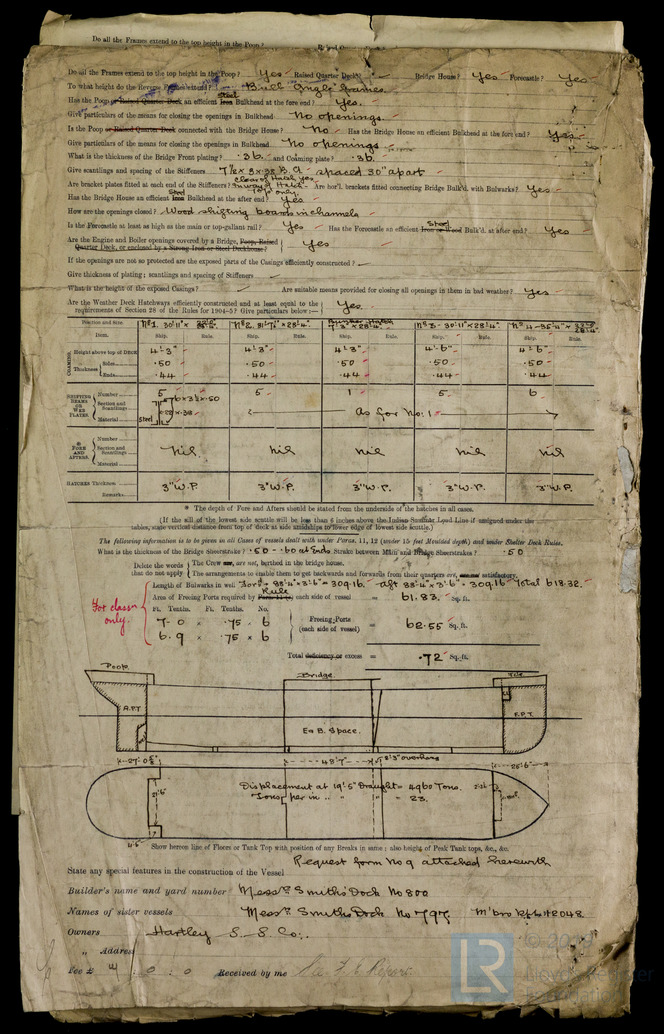 Do all the Frames extend to the top height in the Poop?
Do all the Frames extend to the top height in the Poop? Yes Raised Quarter Deck? Bridge House? Yes Forecastle? Yes
To what height do the Reverse Frames extend? Bulb Angle frames.
Has the Poop or Raised Quarter Deck an efficient Steel Iron Bulkhead at the fore end? Yes.
Give particulars of the means for closing the openings in Bulkhead No openings.
Is the Poop or Raised Quarter Deck connected with the Bridge House? No Has the Bridge House an efficient Bulkhead at the fore end? Yes
Give particulars of the means for closing the openings in Bulkhead No openings
What is the thickness of the Bridge Front plating? .36 and Coaming plate? .36.
Give scantlings and spacing of the Stiffeners spaced 30" apart
Are bracket plates fitted at each end of the Stiffeners? Are hor'l. brackets fitted connecting Bridge Bulk'd. with Bulwarks? Yes
Has the Bridge House an efficient Steel Iron Bulkhead at the after end? Yes
How are the openings closed? Wood shifting boards in channels
Is the Forecastle at least as high as the main or top-gallant rail? Yes Has the Forecastle an efficient Steel Iron or Wood Bulk'd. at after end? Yes
Are the Engine and Boiler openings covered by a Bridge, Poop, Raised Quarter Deck, or enclosed by a Strong Iron or Steel Deckhouse? Yes
If the openings are not so protected are the exposed parts of the Casings efficiently constructed?
Give thickness of plating; scantlings and spacing of Stiffeners
What is the height of the exposed Casings? Are suitable means provided for closing all openings in them in bad weather? Yes
Are the Weather Deck Hatchways efficiently constructed and at least equal to the
requirements of Section 28 of the Rules for 1904-5? Give particulars below:— Yes
Position and size No 1. 30'11" x No 2. 31'7½" x 28'4" 7'3" x 28'4" No 3 - 30'11" x 28'4" No 4 - 35'4" x
Item. Ship. Rule. Ship. Rule. Ship. Rule. Ship. Rule. Ship. Rule.
COAMING Height above top of Deck 4'3" 4'3" 4'3" 4'6" 4'6"
Thickness Sides .50 .50 .50 .50 .50
Ends .44 .44 .44 .44 .44
SHIFTING BEAMS OR WEB PLATES. Number 5 5 1 5 6
Section and Scantlings 6 x 3½ x .50 As for No: 1
Material Steel
* FORE AND AFTERS. Number
Section and Scantlings nil nil nil nil nil
Material
HATCHES Thickness 3" W.P. 3" W.P. 3" W.P. 3" W.P. 3" W.P.
Remarks.
* The depth of Fore and Afters should be stated from the underside of the hatches in all cases.
(If the sill of the lowest side scuttle will be less than 6 inches above the Indian Summer Load Line if assigned under the
tables, state vertical distance from top of deck at side amidships to lower edge of lowest side scuttle.)
The following information is to be given in all Cases of vessels dealt with under Paras. 11, 12 (under 15 feet Moulded depth) and under Shelter Deck Rules.
What is the thickness of the Bridge Sheerstrake? .50 - .60 at Ends Strake between Main and Bridge Sheerstrakes? .50
Delete the words that do not apply The Crew are, are not, berthed in the bridge house.
The arrangements to enable them to get backwards and forwards from their quarters are, are not satisfactory.
Length of Bulwarks in well = 309.16 aft 88'4" x 3'6" = 309.16 Total 618.32.
Area of Freeing Ports required by Rule each side of vessel = 61.83 Sq. ft.
For classn only.
Ft. Tenths. Ft. Tenths. No.
7. 0 x .75 x 6
6. 9 x .75 x 6
Freeing Ports (each side of vessel) = 62.55 Sq. ft.
Total deficiency or excess = .72 Sq. ft.
Poop. Bridge
A.P.T. E & B. Space. F.P.T.
27' 0½" 48'7" 8'3" overhang 25'6"
21'6"
Displacement at 19'5" Draught = 4960 Tons.
Tons per in " " " = 23.
4'6"
Show hereon line of Floors or Tank Top with position of any Breaks in same; also height of Peak Tank tops, &c., &c.
Request form No 9 attached herewith
State any special features in the construction of the Vessel
Builder's name and yard number Messrs Smith's Dock No 800
Names of sister vessels Messrs Smith's Dock No 797. M'bro Rpt. No 12048
Owners Hartley S. S. Co:.
" Address
Fee £ 4 : 0 : 0 Received by me See F. E. Report
LR
© 20